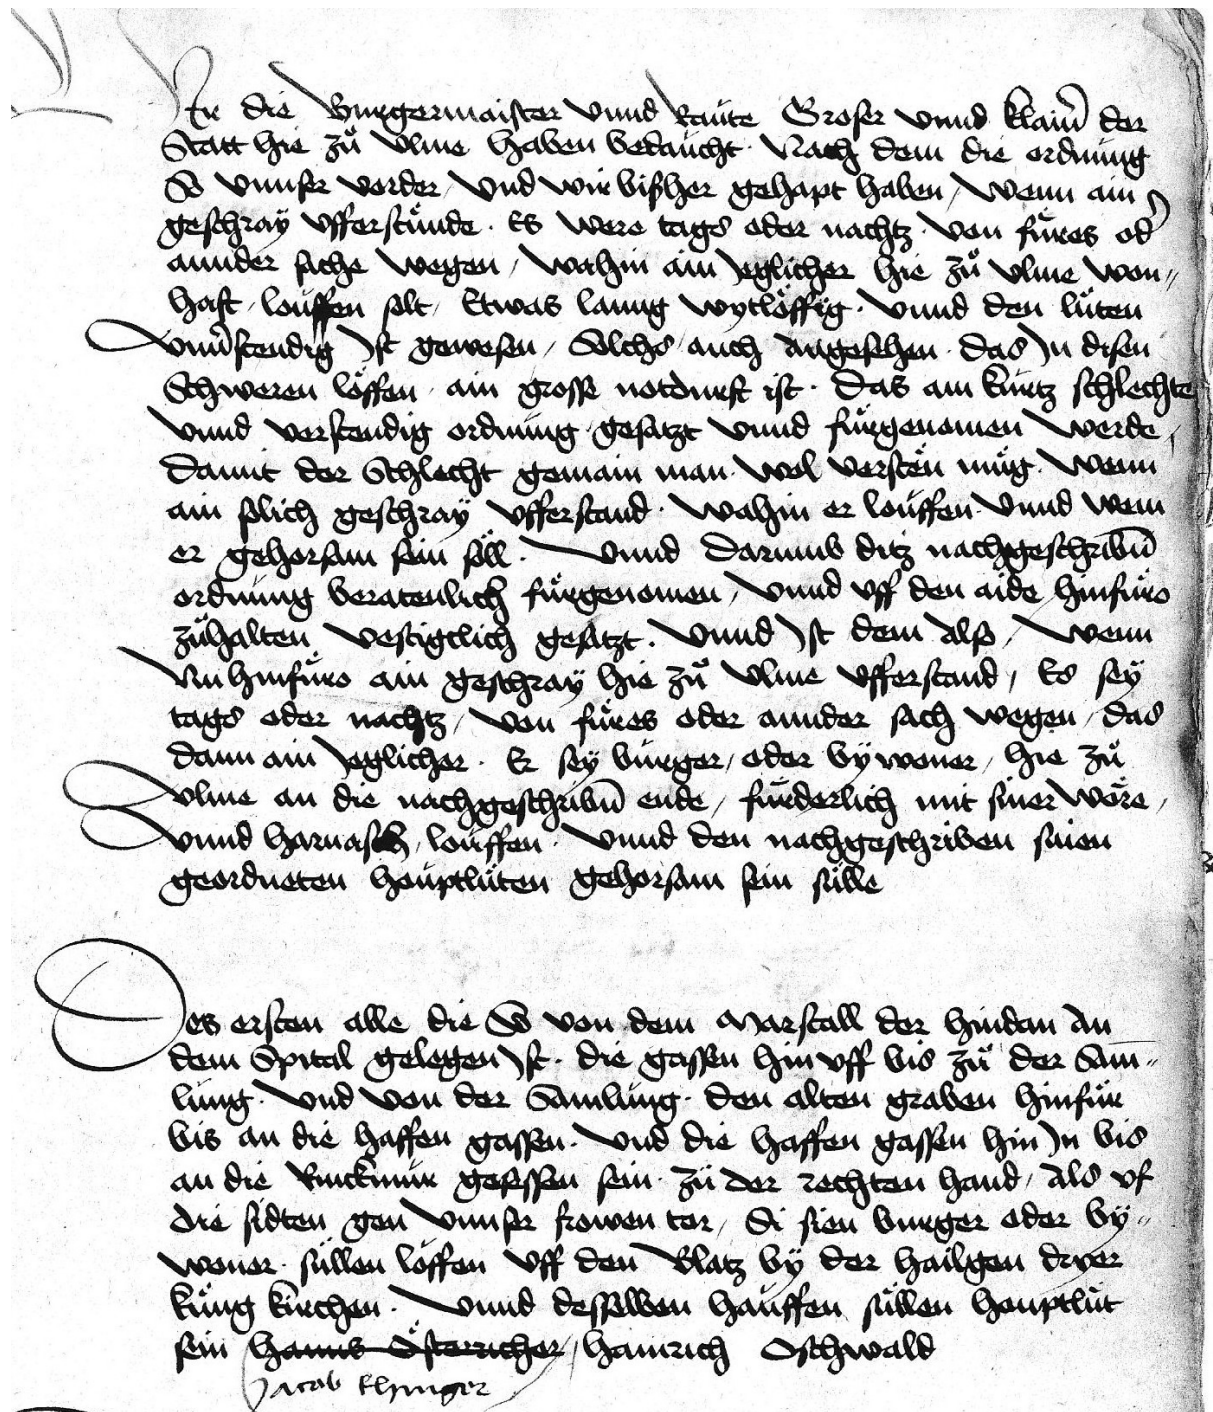 Wir die Burgermaister vnnd Räute Groser vnnd klainˀ der
Statt hie zů Vlme haben bedaucht. Nach dem die ordnung
So vnnser vorder, vnd wir bißher gehapt haben, Wenn ain
geschray vfferstünde. Es were tags oder nachtz. von füres odˀ
annder sache wegen, wahin ain yeglicher hie zů vlme won-
haft, louffen solt, Etwas lanng wytlöffig. vnnd den lüten
vnuˀstendig Jst gewesen, Sölchs auch Angesehen. das Jn disen
Schweren löffen. ain grosse notdurft ist. Das ain kurtz schlechte
vnnd verstendig ordnung gesatzt vnnd fürgenomen werde,
Damit der Schlecht gemain man. wol versten müg. Wenn
ain solich geschray vfferstand. wahin er louffen. vnnd wem
er gehorsam sein söll. Vnnd Darumb ditz nachgeschribn̄
ordnung beratenlich fürgenomen, vnnd vff den aide, hinfüro
zůhalten vestigklich gesatzt. Vnnd Jst dem Also, Wenn
Nu hinfüro ain geschray hie zů Vlme vfferstand, Es sey
tags oder nachtz, von füres oder annder sach wegen, das
dann ain yeglicher. Er sey burger, oder bywoner, hie zů
Vlme an die nachgeschribn̄ ende, fürderlich mit siner wöre,
vnnd harnasch, louffen. vnnd den nachgeschriben sinen
geordneten houptlüten gehorsam sein sülle
Des ersten alle die So von dem Marstall der hindan An
dem Spital gelegen Jst. die gassen hin vff bis zů der Sam-
lung. Vnd von der Samlung. den alten graben hinfür
bis an die haffen gassen. Vnd die haffen gassen hin Jn bis
an die Rinckmur gesessen sein. zů der rechten hand, Als vf
die sidten gen vnnser frowen tor, Si sien burger oder by-
woner. süllen löffen vff den Blatz by der hailgen dryer
küng kirchen. Vnnd desselben hauffen süllen houptlüt
sein hanns Österricher, hainrich Oschwald
Jacob Ehinger